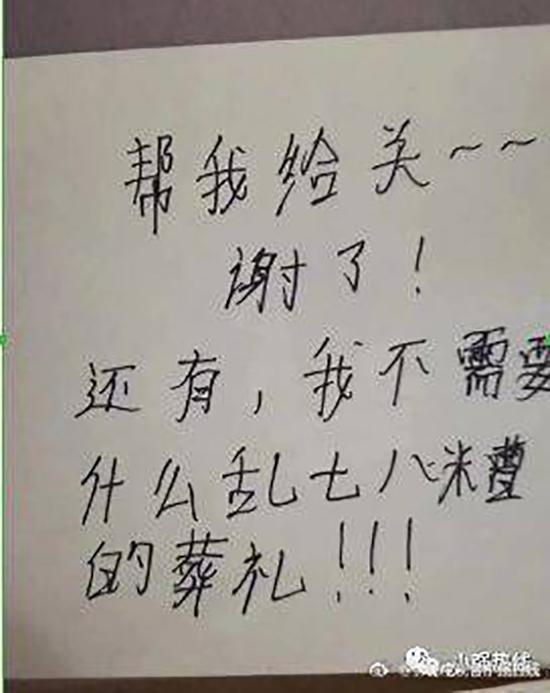 帮我给关~~
谢了!
还有,我不需要
什么乱七八糟
的葬礼!!!
小强热线